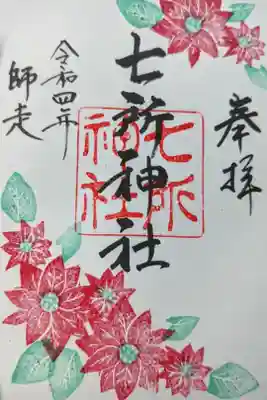 奉拝
七所神社
七所
福社
令和四年
師走